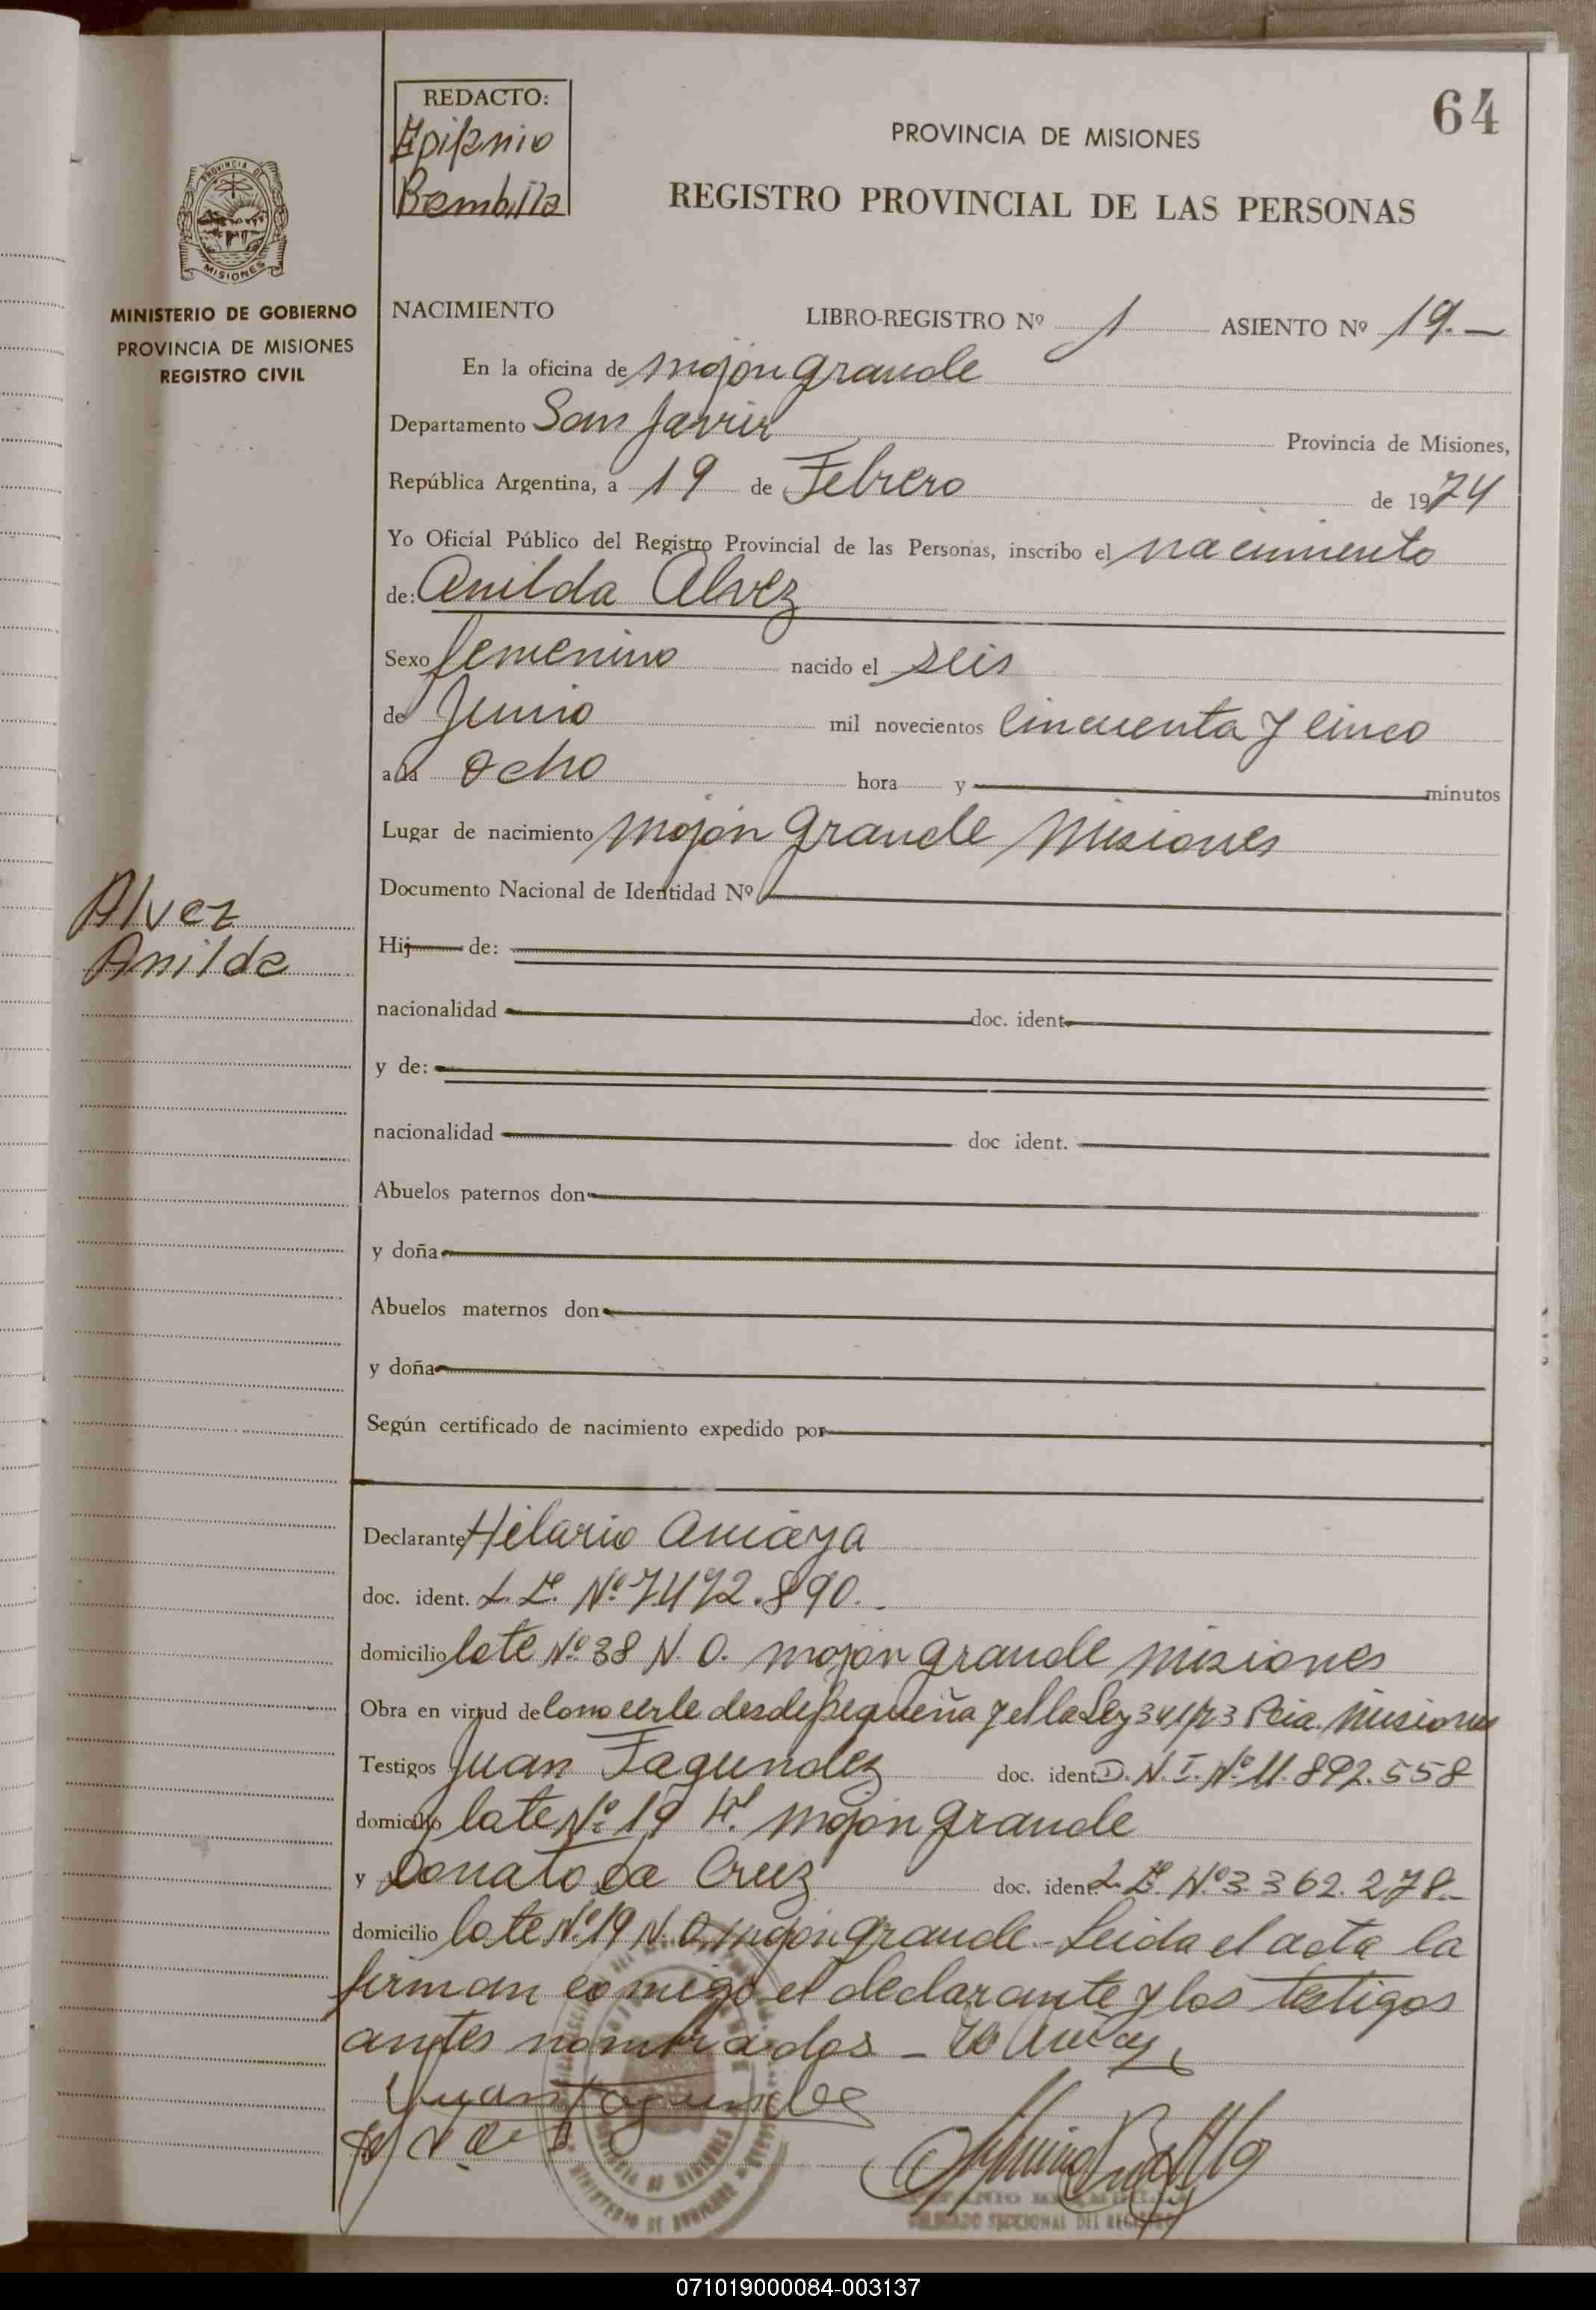 64
REDACTO:
Epifanio
Bambilla
PROVINCIA DE MISIONES
REGISTRO PROVINCIAL DE LAS PERSONAS
PROVINCIA DE
MISIONES
MINISTERIO DE GOBIERNO
PROVINCIA DE MISIONES
REGISTRO CIVIL
NACIMIENTO LIBRO-REGISTRO Nº 1 ASIENTO Nº 19.—
En la oficina de mojon grande
Departamento San Javier Provincia de Misiones,
República Argentina, a 19 de Febrero de 1974
Yo Oficial Público del Registro Provincial de las Personas, inscribo el nacimiento
de: Anilda Alvez
Sexo femenino nacido el seis
de Junio mil novecientos cincuenta y cinco
a la ocho hora y minutos
Lugar de nacimiento mojón grande Misiones
Documento Nacional de Identidad Nº
Alvez
Anilda
Hij de:
nacionalidad doc. ident.
y de:
nacionalidad doc ident.
Abuelos paternos don
y doña
Abuelos maternos don
y doña
Según certificado de nacimiento expedido por
Declarante Hilario Amaya
doc. ident. L.E. Nº 7.472.890.-
domicilio lote Nº 38 N.O. mojón grande misiones
Obra en virtud de conocerle desde pequeña y el la Ley 341/73 Pcia. Misiones
Testigos Juan Fagundez doc. ident. D.N.I. Nº 11.892.558
domicilio lote Nº 19 mojón grande
y Donato da Cruz doc. ident. L.E. Nº 3.362.278.-
domicilio lote Nº 19 N.O. mojón grande.- Leida el acta la
firman comigo el declarante y los testigos
antes nombrados —
Juan Fagundez
DELEGADO SECCIONAL DEL REGISTRO
071019000084-003137